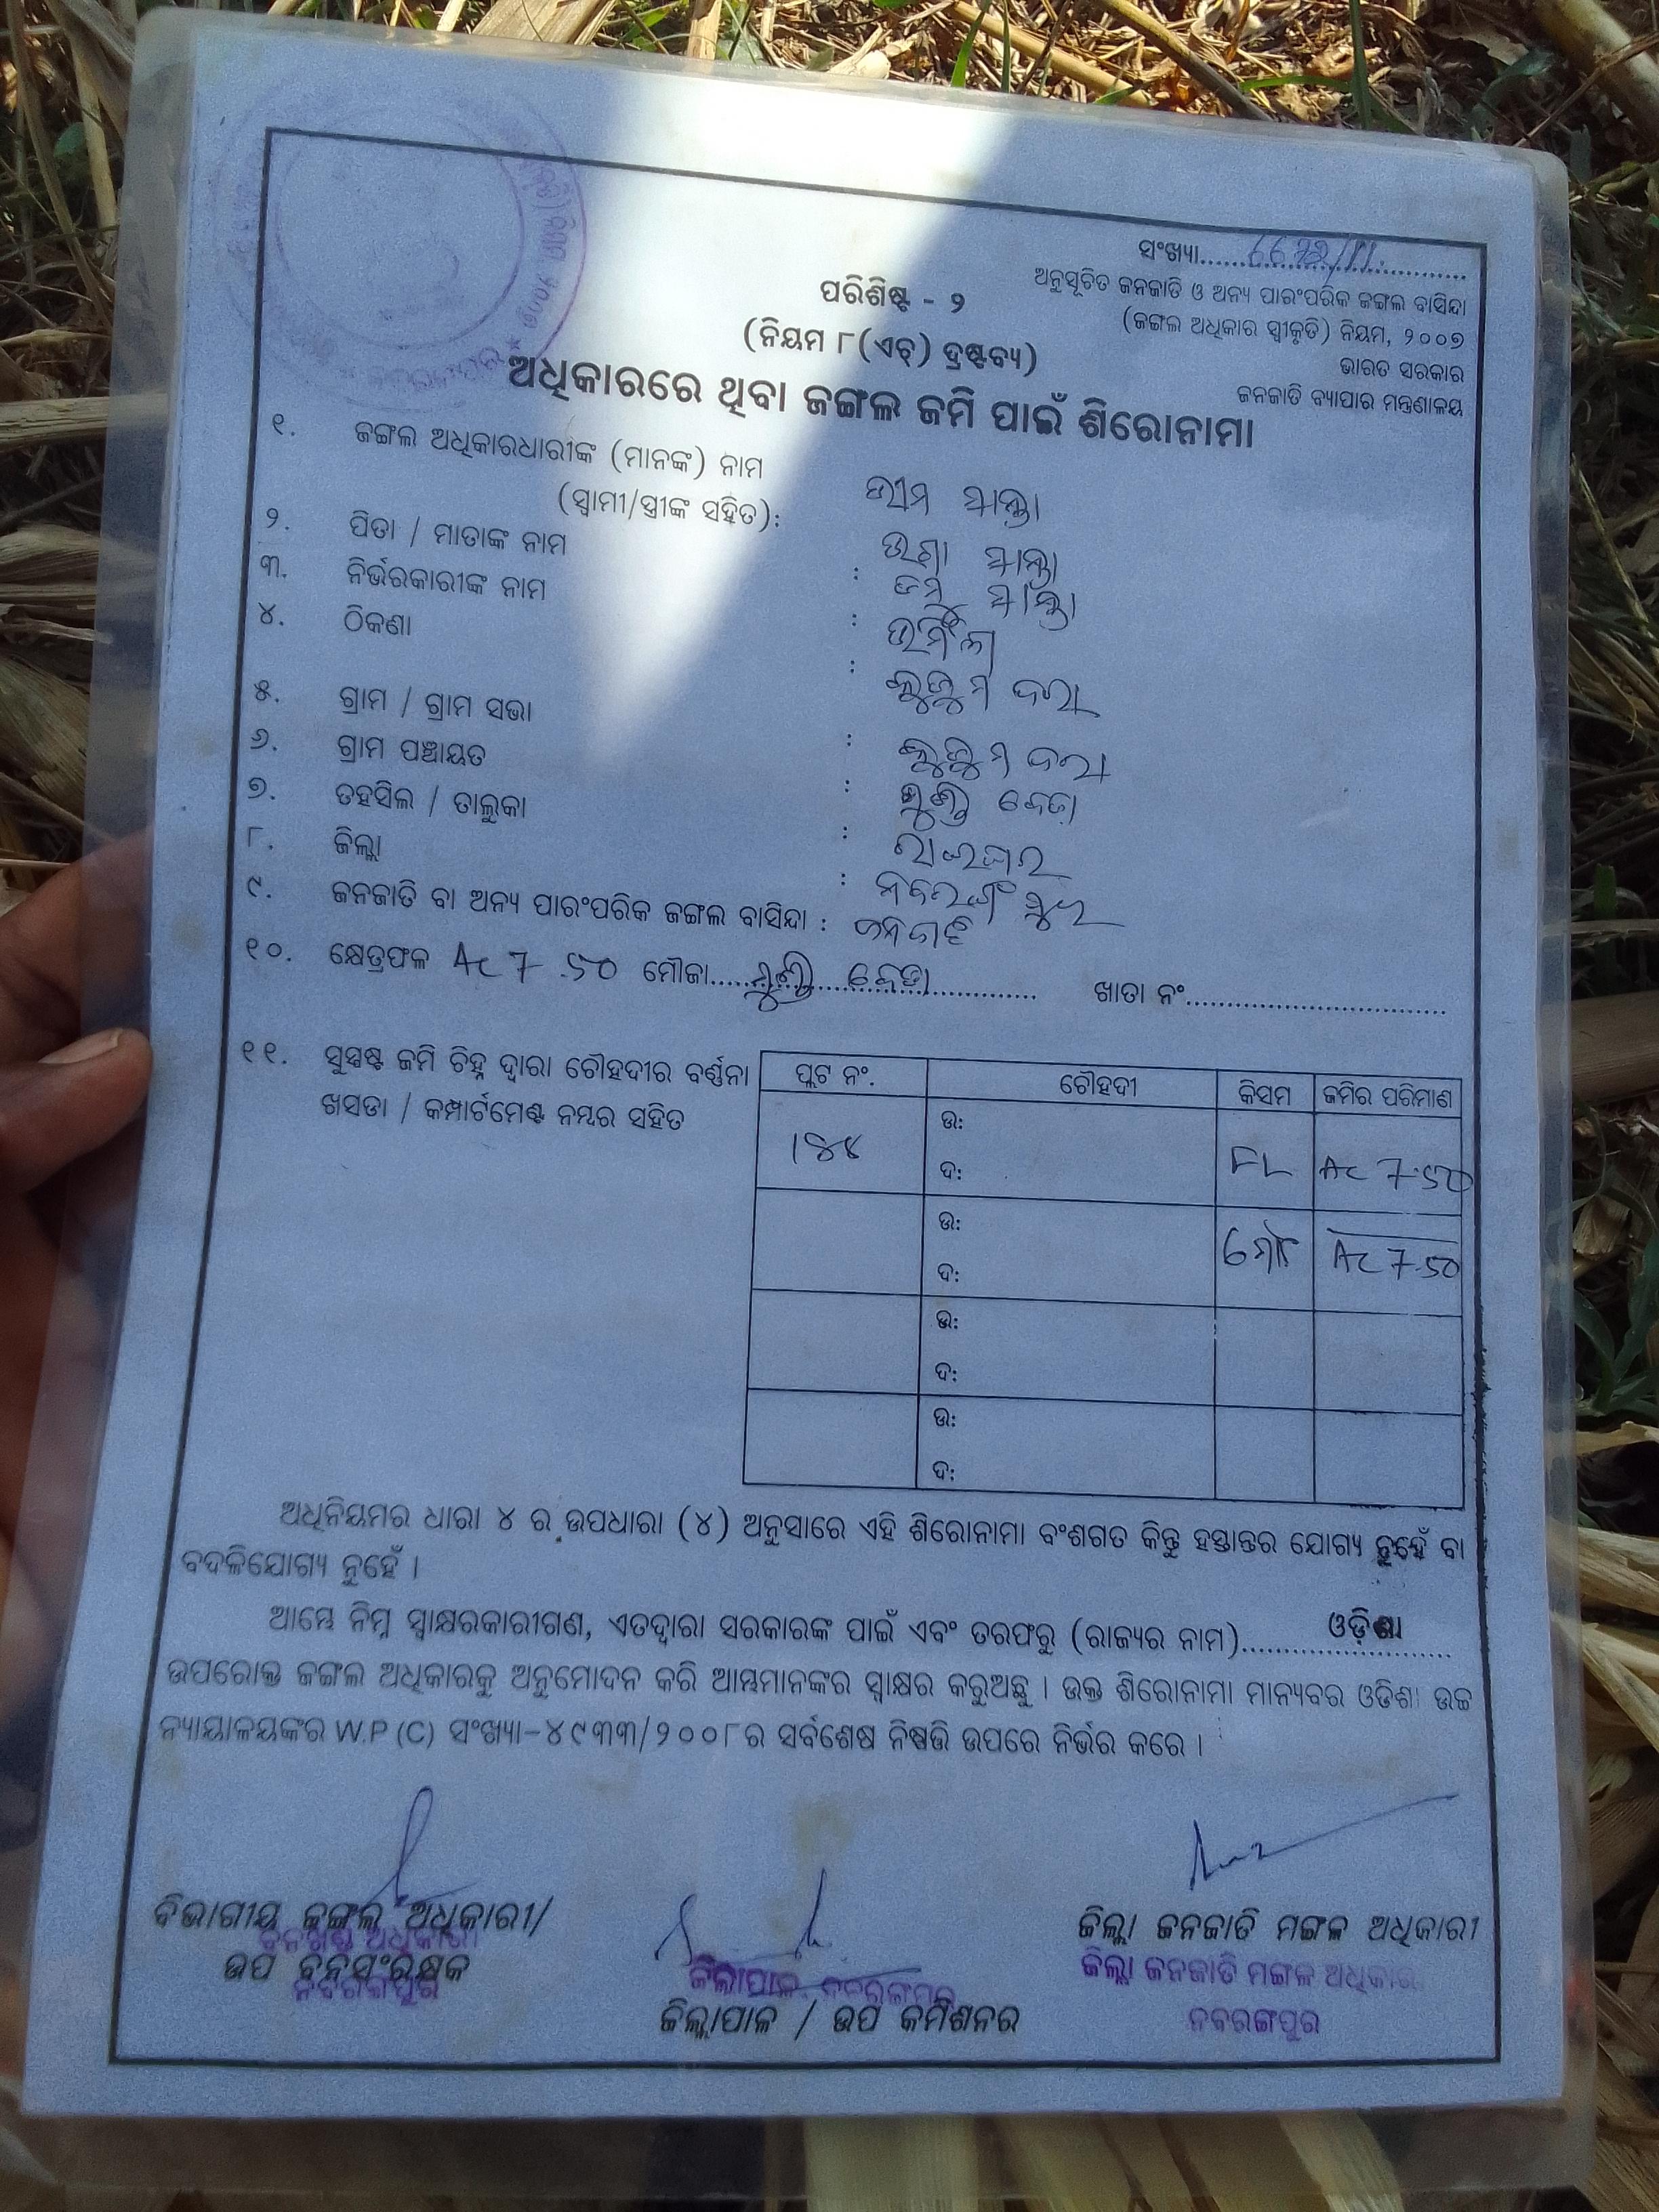 ସଂଖ୍ୟା
ଅନୁସୂଚିତ ଜନଜାତି ଓ ଅନ୍ୟ ପାରଂପରିକ ଜଙ୍ଗଲ ବାସିନ୍ଦା
(ଜଙ୍ଗଲ ଅଧିକାର ସ୍ୱୀକୃତି) ନିୟମ, ୨୦୦୭
ଭାରତ ସରକାର
ଜନଜାତି ବ୍ୟାପାର ମନ୍ତ୍ରଣାଳୟ
ପରିଶିଷ୍ଟ - ୨
(ନିୟମ ୮(ଏଚ୍) ଦ୍ରଷ୍ଟବ୍ୟ)
ଅଧିକାରରେ ଥିବା ଜଙ୍ଗଲ ଜମି ପାଇଁ ଶିରୋନାମା
୧. ଜଙ୍ଗଲ ଅଧିକାରଧାରୀଙ୍କ (ମାନଙ୍କ) ନାମ
(ସ୍ୱାମୀ/ସ୍ତ୍ରୀଙ୍କ ସହିତ):
୨. ପିତା / ମାତାଙ୍କ ନାମ :
୩. ନିର୍ଭରକାରୀଙ୍କ ନାମ :
୪. ଠିକଣା :
୫. ଗ୍ରାମ / ଗ୍ରାମ ସଭା :
୬. ଗ୍ରାମ ପଞ୍ଚାୟତ :
୭. ତହସିଲ / ତାଲୁକା : ରାଇଘର
୮. ଜିଲ୍ଲା : ନବରଙ୍ଗପୁର
୯. ଜନଜାତି ବା ଅନ୍ୟ ପାରଂପରିକ ଜଙ୍ଗଲ ବାସିନ୍ଦା : ଜନଜାତି
୧୦. କ୍ଷେତ୍ରଫଳ Ac 7.50 ମୌଜା ଖାତା ନଂ
୧୧. ସୁସ୍ପଷ୍ଟ ଜମି ଚିହ୍ନ ଦ୍ୱାରା ଚୌହଦୀର ବର୍ଣ୍ଣନା
ଖସଡା / କମ୍ପାର୍ଟମେଣ୍ଟ ନମ୍ବର ସହିତ
ପ୍ଲଟ ନଂ. ଚୌହଦୀ କିସମ ଜମିର ପରିମାଣ
ଉ:
ଦ: FL Ac 7.50
ଉ:
ଦ: Ac 7.50
ଉ:
ଦ:
ଉ:
ଦ:
ଅଧିନିୟମର ଧାରା ୪ ର ଉପଧାରା (୪) ଅନୁସାରେ ଏହି ଶିରୋନାମା ବଂଶଗତ କିନ୍ତୁ ହସ୍ତାନ୍ତର ଯୋଗ୍ୟ ନୁହେଁ ବା
ବଦଳିଯୋଗ୍ୟ ନୁହେଁ ।
ଆମ୍ଭେ ନିମ୍ନ ସ୍ୱାକ୍ଷରକାରୀଗଣ, ଏତଦ୍ୱାରା ସରକାରଙ୍କ ପାଇଁ ଏବଂ ତରଫରୁ (ରାଜ୍ୟର ନାମ) ଓଡ଼ିଶା
ଉପରୋକ୍ତ ଜଙ୍ଗଲ ଅଧିକାରକୁ ଅନୁମୋଦନ କରି ଆମ୍ଭମାନଙ୍କର ସ୍ୱାକ୍ଷର କରୁଅଛୁ । ଉକ୍ତ ଶିରୋନାମା ମାନ୍ୟବର ଓଡିଶା ଉଚ୍ଚ
ନ୍ୟାୟାଳୟଙ୍କର W.P (C) ସଂଖ୍ୟା-୪୯୩୩/୨୦୦୮ର ସର୍ବଶେଷ ନିଷ୍ପତ୍ତି ଉପରେ ନିର୍ଭର କରେ ।
ବିଭାଗୀୟ ଜଙ୍ଗଲ ଅଧିକାରୀ/
ବନଖଣ୍ଡ ଅଧିକାରୀ
ଉପ ବନସଂରକ୍ଷକ
ନବରଙ୍ଗପୁର
ଜିଲ୍ଲାପାଳ, ନବରଙ୍ଗପୁର
ଜିଲ୍ଲାପାଳ / ଉପ କମିଶନର
ଜିଲ୍ଲା ଜନଜାତି ମଙ୍ଗଳ ଅଧିକାରୀ
ଜିଲ୍ଲା ଜନଜାତି ମଙ୍ଗଳ ଅଧିକାରୀ
ନବରଙ୍ଗପୁର